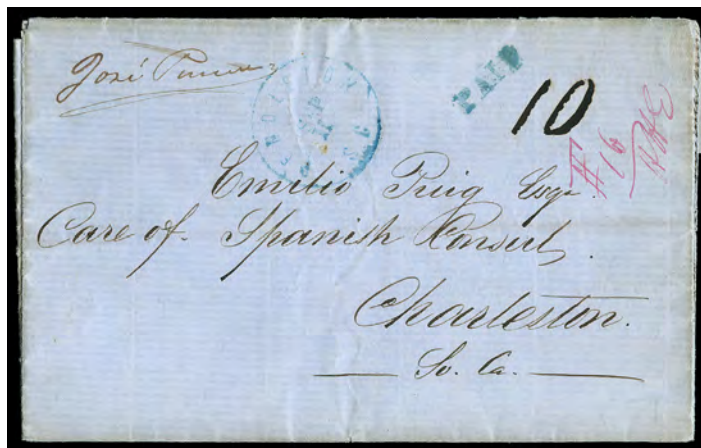 José
PAID
10
SEP
S.C.
#16
Emilio Puig Esqr.
Care of. Spanish Consul,
Charleston.
So. Ca.